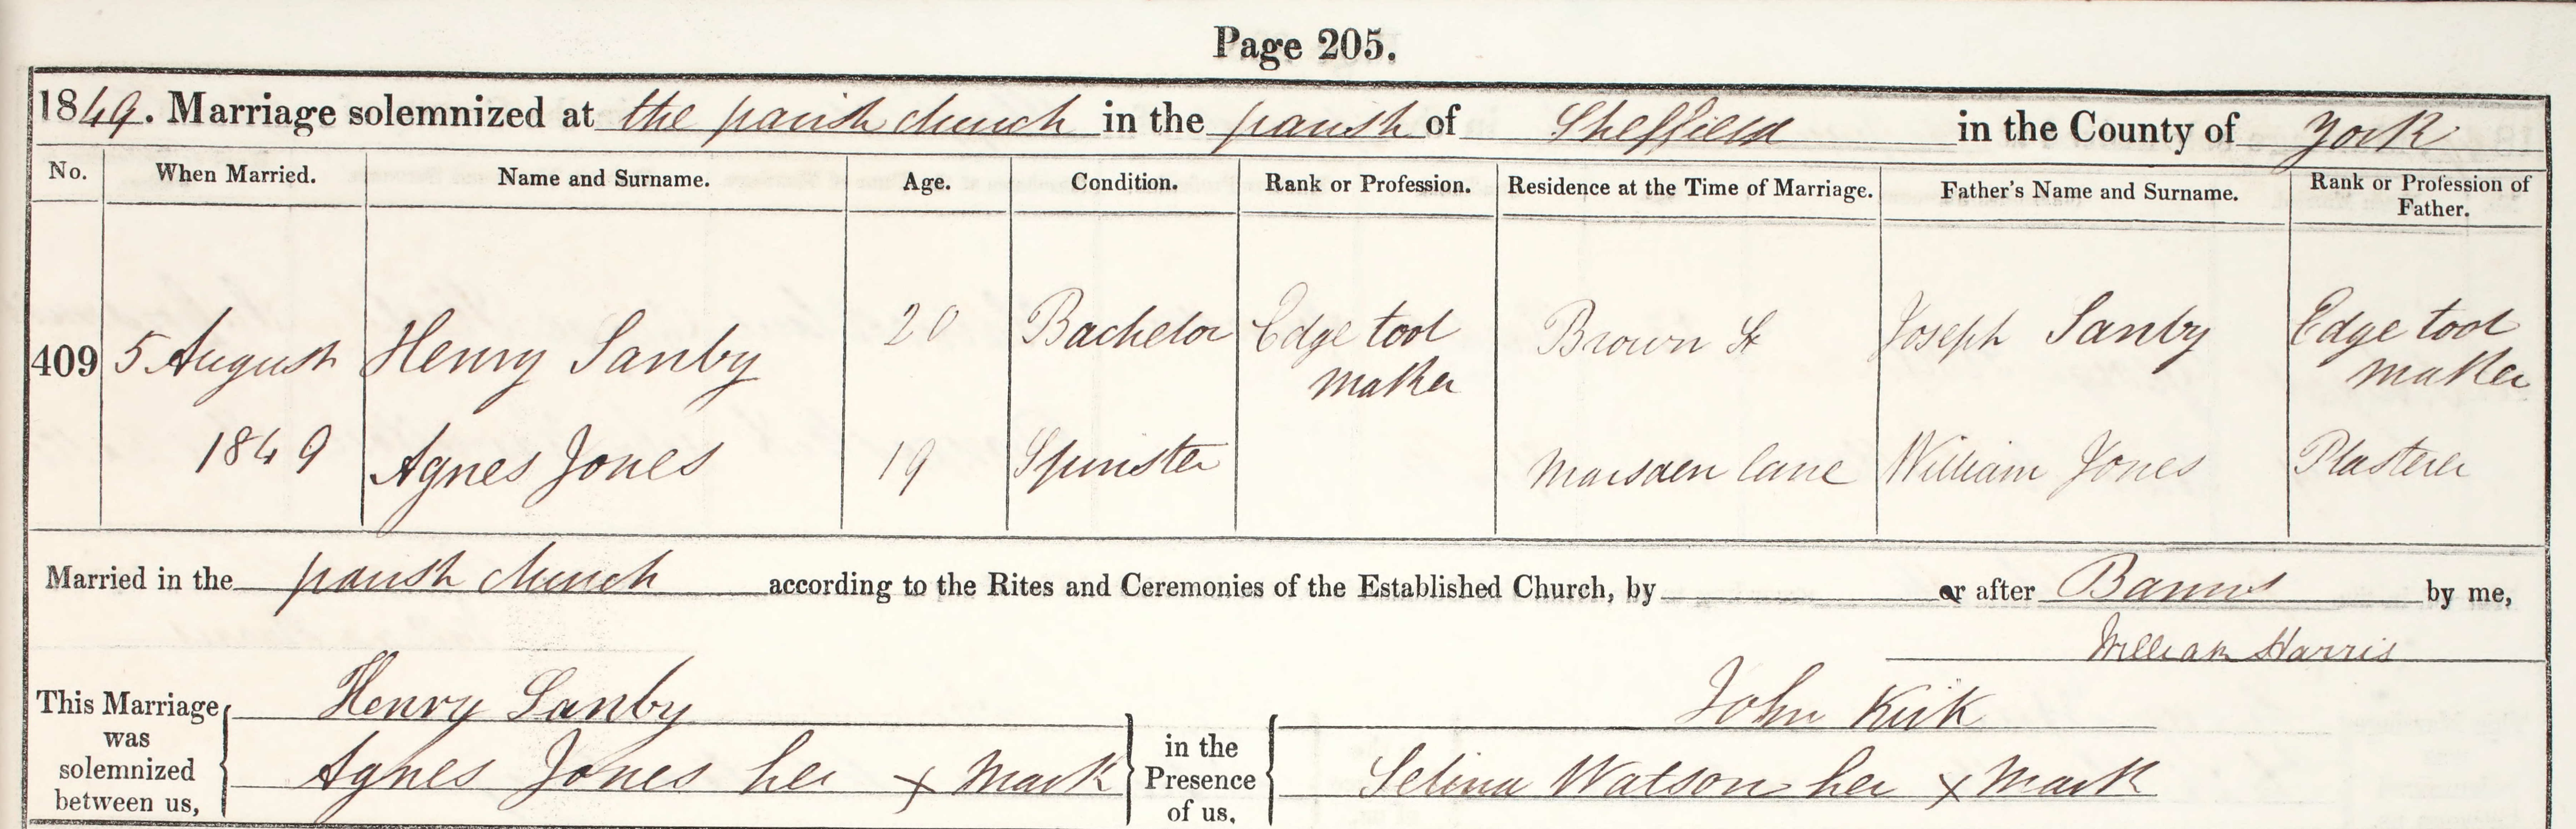 Page 205.
1849. Marriage solemnized at the parish church in the parish of Sheffield in the County of York
No. When Married. Name and Surname. Age. Condition. Rank or Profession. Residence at the Time of Marriage. Father's Name and Surname. Rank or Profession of Father.
409 5 August Henry Sanby 20 Bachelor Edge tool maker Brown St Joseph Sanby Edge tool maker
1849 Agnes Jones 19 Spinster Marsden lane William Jones Plasterer
Married in the parish church according to the Rites and Ceremonies of the Established Church, by or after Banns by me,
William Harris
This Marriage was solemnized between us, Henry Sanby Agnes Jones her x mark in the Presence of us, John Kirk Selina Watson her x mark